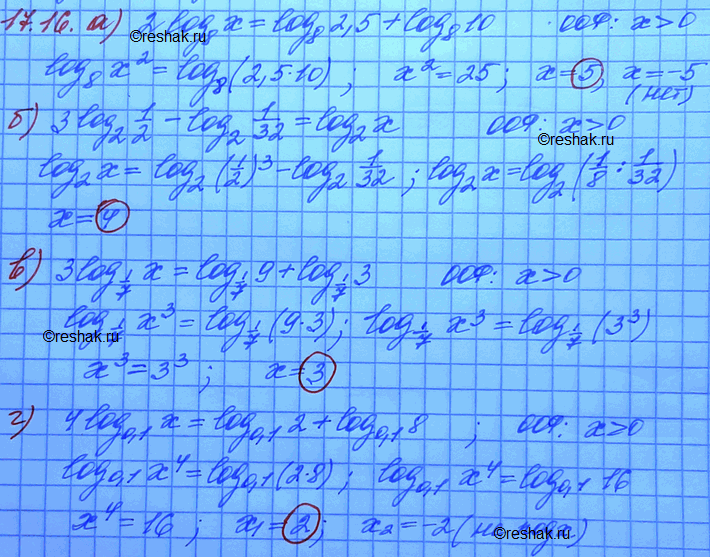 17.16. а) 2 log₈ x = log₈ 2,5 + log₈ 10 ООФ: x > 0
©reshak.ru
log₈ x² = log₈ (2,5·10) ; x² = 25 ; x = 5, x = -5
(нет)
б) 3 log₂ 1/2 - log₂ 1/32 = log₂ x ООФ: x > 0
©reshak.ru
log₂ x = log₂ (1/2)³ - log₂ 1/32 ; log₂ x = log₂ (1/8 : 1/32)
x = 4
в) 3 log_{1/7} x = log_{1/7} 9 + log_{1/7} 3 ООФ: x > 0
log_{1/7} x³ = log_{1/7} (9·3) ; log_{1/7} x³ = log_{1/7} (3³)
©reshak.ru
x³ = 3³ ; x = 3
г) 4 log_{0,1} x = log_{0,1} 2 + log_{0,1} 8 ; ООФ: x > 0
log_{0,1} x⁴ = log_{0,1} (2·8) ; log_{0,1} x⁴ = log_{0,1} 16
x⁴ = 16 ; x₁ = 2 ; x₂ = -2
©reshak.ru